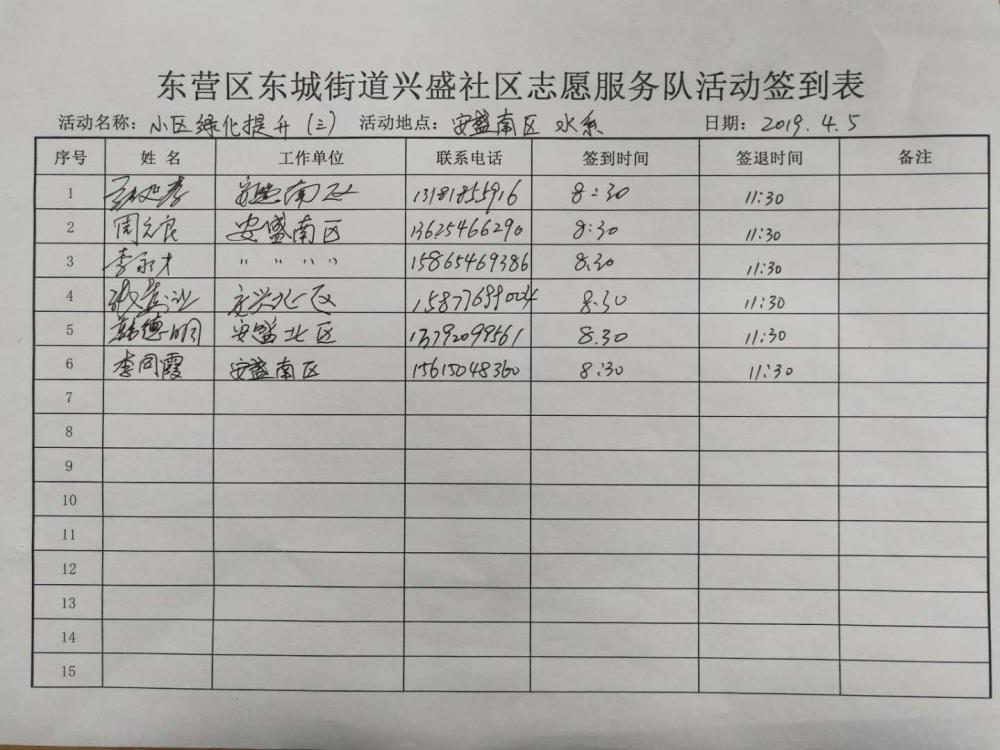 东营区东城街道兴盛社区志愿服务队活动签到表
活动名称: 小区绿化提升(三) 活动地点: 安盛南区 水系 日期: 2019.4.5
序号 姓名 工作单位 联系电话 签到时间 签退时间 备注
1 安盛南区 13181855916 8:30 11:30
2 周元良 安盛南区 13625466290 8:30 11:30
3 李永才 〃 〃 〃 〃 15865469386 8:30 11:30
4 8:30 11:30
5 韩德明 安盛北区 13792099561 8.30 11:30
6 李同霞 安盛南区 15615048360 8:30 11:30
7
8
9
10
11
12
13
14
15